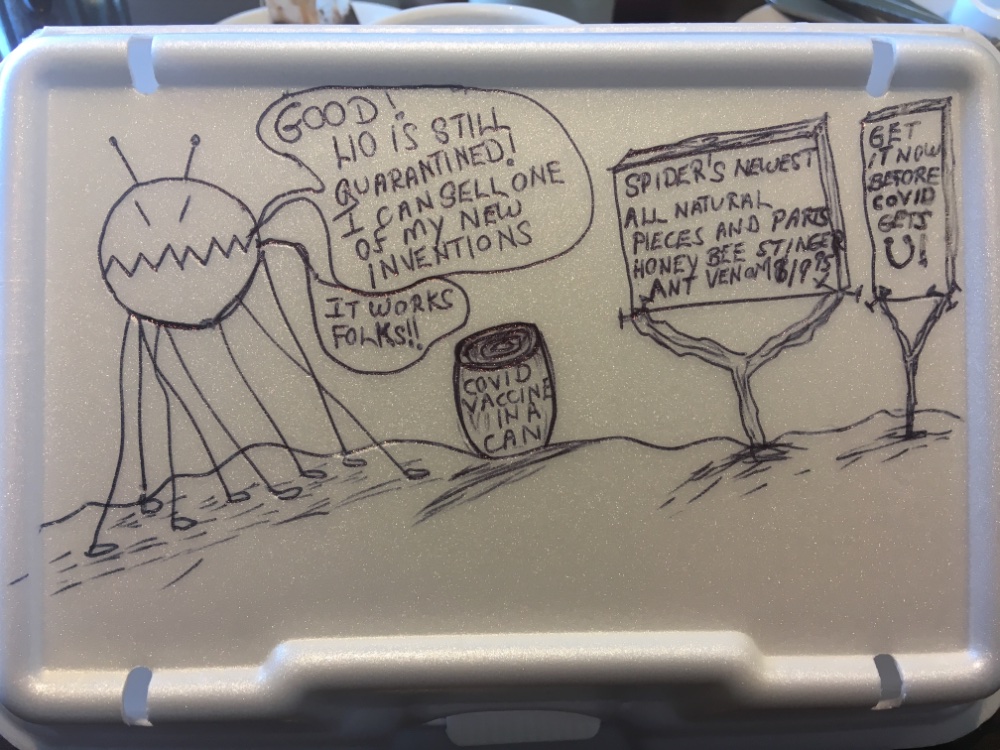 GOOD!
LIO IS STILL
QUARANTINED!
I CAN SELL ONE
OF MY NEW
INVENTIONS
IT WORKS
FOLKS!!
COVID
VACCINE
IN A
CAN
SPIDER'S NEWEST
ALL NATURAL
PIECES AND PARTS
HONEY BEE STINGER
ANT VENOM
GET
IT NOW
BEFORE
COVID
GETS
U!